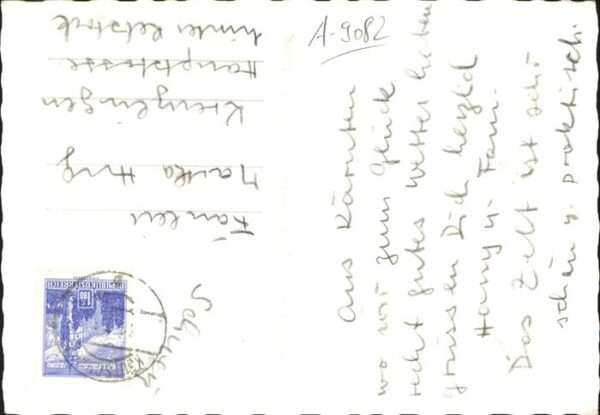 A-9082
Aus Kärnten
wo wir zum Glück
recht gutes Wetter haben
grüssen Dich herzlich
Hany u. Fam.
Das Zelt ist sehr
schön u. praktisch.
Fräulein
Martha Hug
Kreuzlingen
Hauptstrasse
hinter
Schweiz
REPUBLIK ÖSTERREICH